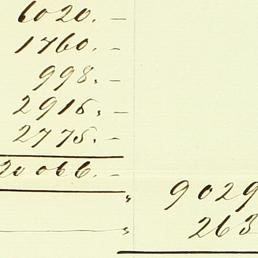 6020. –
1760. –
998. –
2915. –
2775. –
20066. –
" 9029
" 263